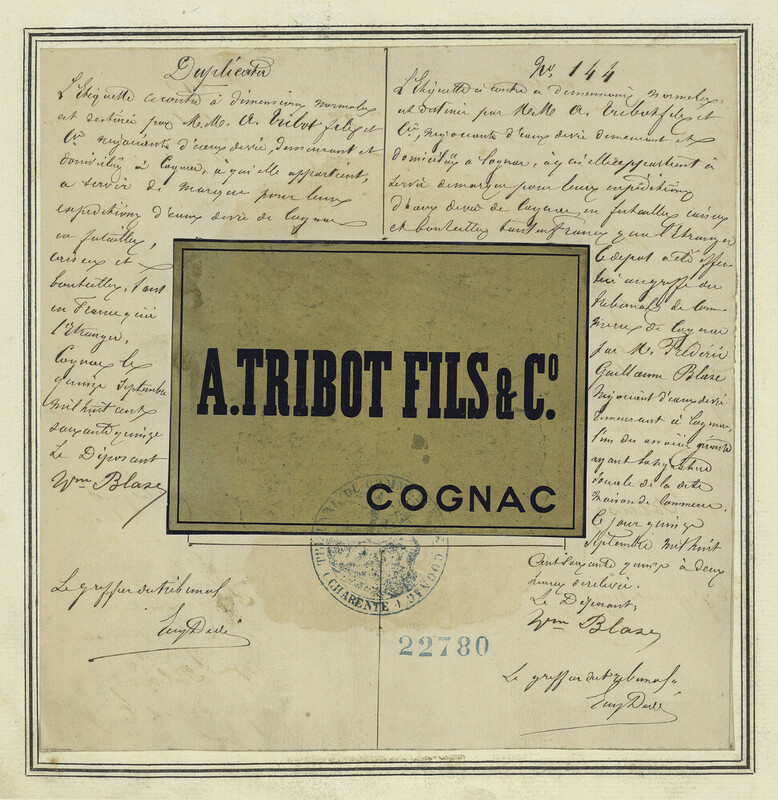 Duplicata
L'Étiquette ci contre à dimensions normales
est destinée par M.M. A. Tribot fils et
Cie négociants d'eaux devie, demeurant et
domiciliés à Cognac, à qui elle appartient,
a servir de marque pour leurs
expéditions d'eaux devie de Cognac
en futailles,
caisses et
bouteilles, tant
en France qu'à
l'Etranger.
Cognac le
quinze Septembre
mil huit cent
soixante quinze
Le Déposant
Wm Blase
Le greffier du tribunal
No 144
L'Etiquette ci contre a dimensions normales
est destinée par M.M. A. Tribot fils et
Cie, négociants d'eaux devie demeurant et
domiciliés a Cognac, à qui elle appartient à
servir de marque pour leurs expéditions
d'eaux devie de Cognac en futailles caisses
et bouteilles tant en France qu'a l'Etranger
Le dépot a été effec
tué au greffe du
tribunal de Com
merce de Cognac
par M. Frédéric
Guillaume Blase
Négociant d'eaux devie
demeurant à Cognac,
l'un des associés gérants
ayant la signature
sociale de la dite
maison de Commerce.
Ce jour quinze
Septembre mil huit
Cent soixante quinze à deux
heures de relevée.
Le Déposant,
Wm Blase
Le greffier du tribunal
A. TRIBOT FILS & Co.
COGNAC
TRIBUNAL DE COMMERCE
COGNAC
(CHARENTE)
22780